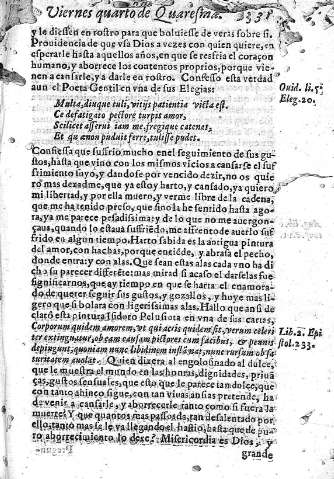 Viernes quarto de Quaresma. 331
y le diessen en rostro para que boluiesse de veras sobre si.
Prouidencia de que vsa Dios a vezes con quien quiere, en
esperarle hasta aquellos años, en que se resfria el coraçon
humano, y aborrece los contentos proprios, porque vie-
nen a cansarle, y a darle en rostro. Confesso esta verdad
aun el Poeta Gentil en vna de sus Elegias:
Ouid. li. 5.
Eleg. 20.
Multa, diuque tuli, vitijs patientia victa est.
Ce defatigato pectore turpis amor,
Scilicet asserui iam me, fregique catenas,
Et quæ non puduit ferre, tulisse pudet.
Confiessa que sufrio mucho en el seguimiento de sus gu-
stos, hasta que vino con los mismos vicios a cansarse el suf
frimiento suyo, y dandose por vencido dezir, no os quie
ro mas dexadme, que ya estoy harto, y cansado, ya quiero
mi libertad, y por ella muero, y verme libre de la cadena,
que me ha tenido preso, que sino la he sentido hasta ago-
ra, ya me parece pesadissima; y de lo que no me auergon-
çaua, quando lo estaua sufriendo, me afrento de auerlo suf
frido en algun tiempo. Harto sabida es la antigua pintura
del amor, con hachas, porque enciẽde, y abrasa el pecho,
donde entra: y con alas. Que sean estas alas cada vno ha di
cho su parecer differẽte: mas mirad si acaso el darselas fue
significarnos, que ay tiempo en que se harta el enamora-
do de querer seguir sus gustos, y gozallos, y huye mas li-
gero que si bolara con ligerissimas alas. Hallo que assi de
claró esta pintura Isidoro Pelusiota en vna de sus cartas,
Corporum quidem amorem, vt qui acris quidem sit, verum celeri
ter extinguatur, ob eam causam pictores cum facibus, & pennis
depingunt, quoniam nunc libidinem inflamat, nunc rursum ob sa
turitatem auolat.
Lib. 2. Epi
stol. 233.
Quien dixera al engolosinado al dulce,
que le muestra el mundo en las honras, dignidades, priuã
ças, gustos sensuales, que esto que le parece tan dolce, que
con tanto ahinco sigue, con tan viuas ansias pretende, ha
de venir a cansarle, y aborrecerle tanto como si fuera la
muerte? Y que quantos mas passos dà, tan desalentado por
ello, tanto mas se le va llegando el hastio, hasta que de pu-
ro aborrecimiento lo dexe? Misericordia es Dios, y
grande